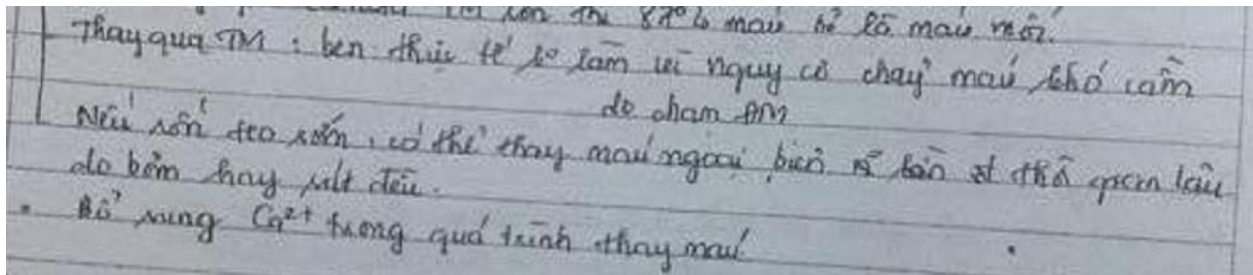 thì 87% máu bị là máu mới.
Thay qua TM : bên thực tế ko làm vì nguy cơ chảy máu khó cầm
do chạm ĐM
Nếu rốn teo , có thể thay máu ngoại biên thời gian lâu
do bơm hay rút đều.
• Bổ sung Ca²⁺ trong quá trình thay máu